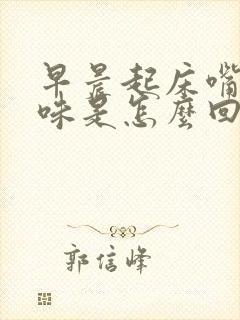 早晨起床嘴
味是怎麼回
郭信峰